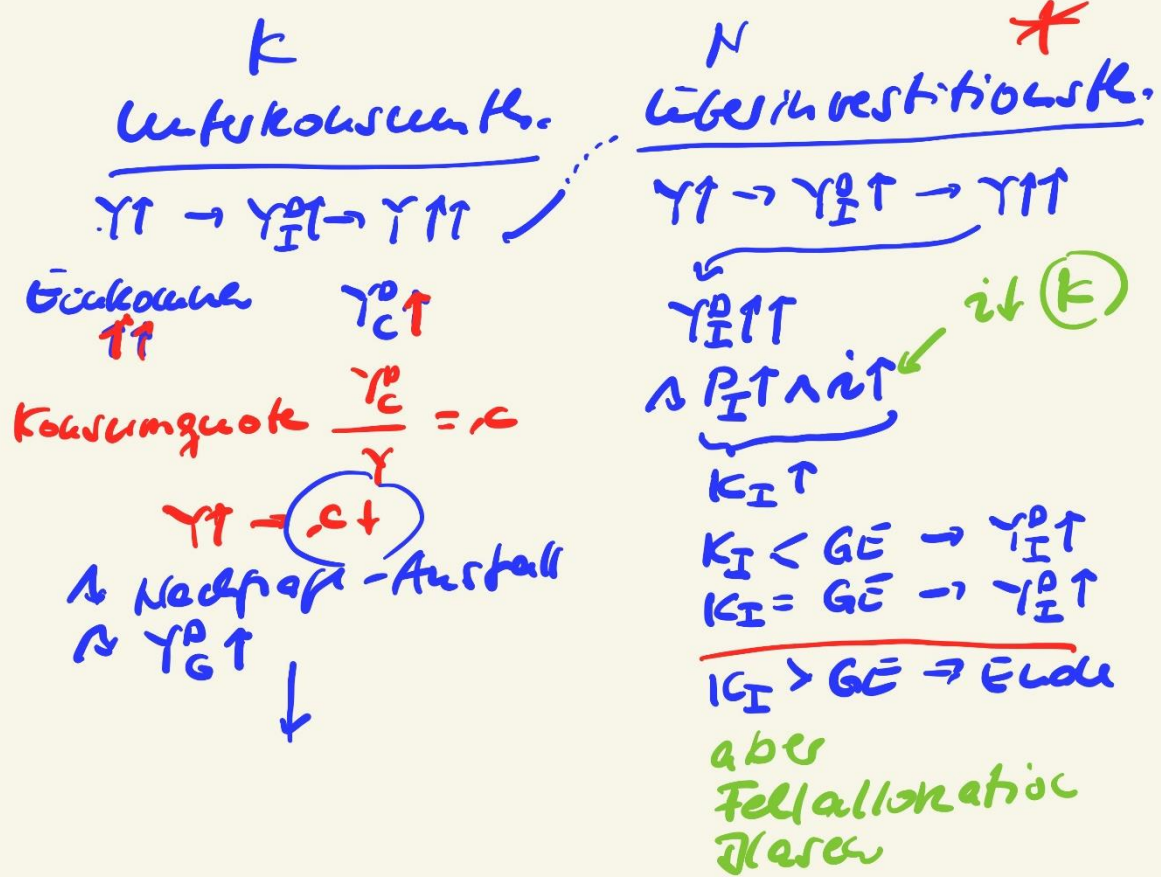 K
Unterkonsumth.
Y↑ → Y_I^D↑ → Y↑↑
Einkommen ↑↑ Y_C^D↑
Konsumquote Y_C^D / Y = c
Y↑ → c↓
⇒ Nachfrage-Ausfall
⇒ Y_G^D↑
↓
N *
Überinvestitionsth.
Y↑ → Y_I^D↑ → Y↑↑
Y_I^D↑↑
i↓ K
⇒ P_I↑ ∧ i↑
K_I↑
K_I < GE → Y_I^D↑
K_I = GE → Y_I^D↑
K_I > GE → Ende
aber
Fehlallokation
Blasen